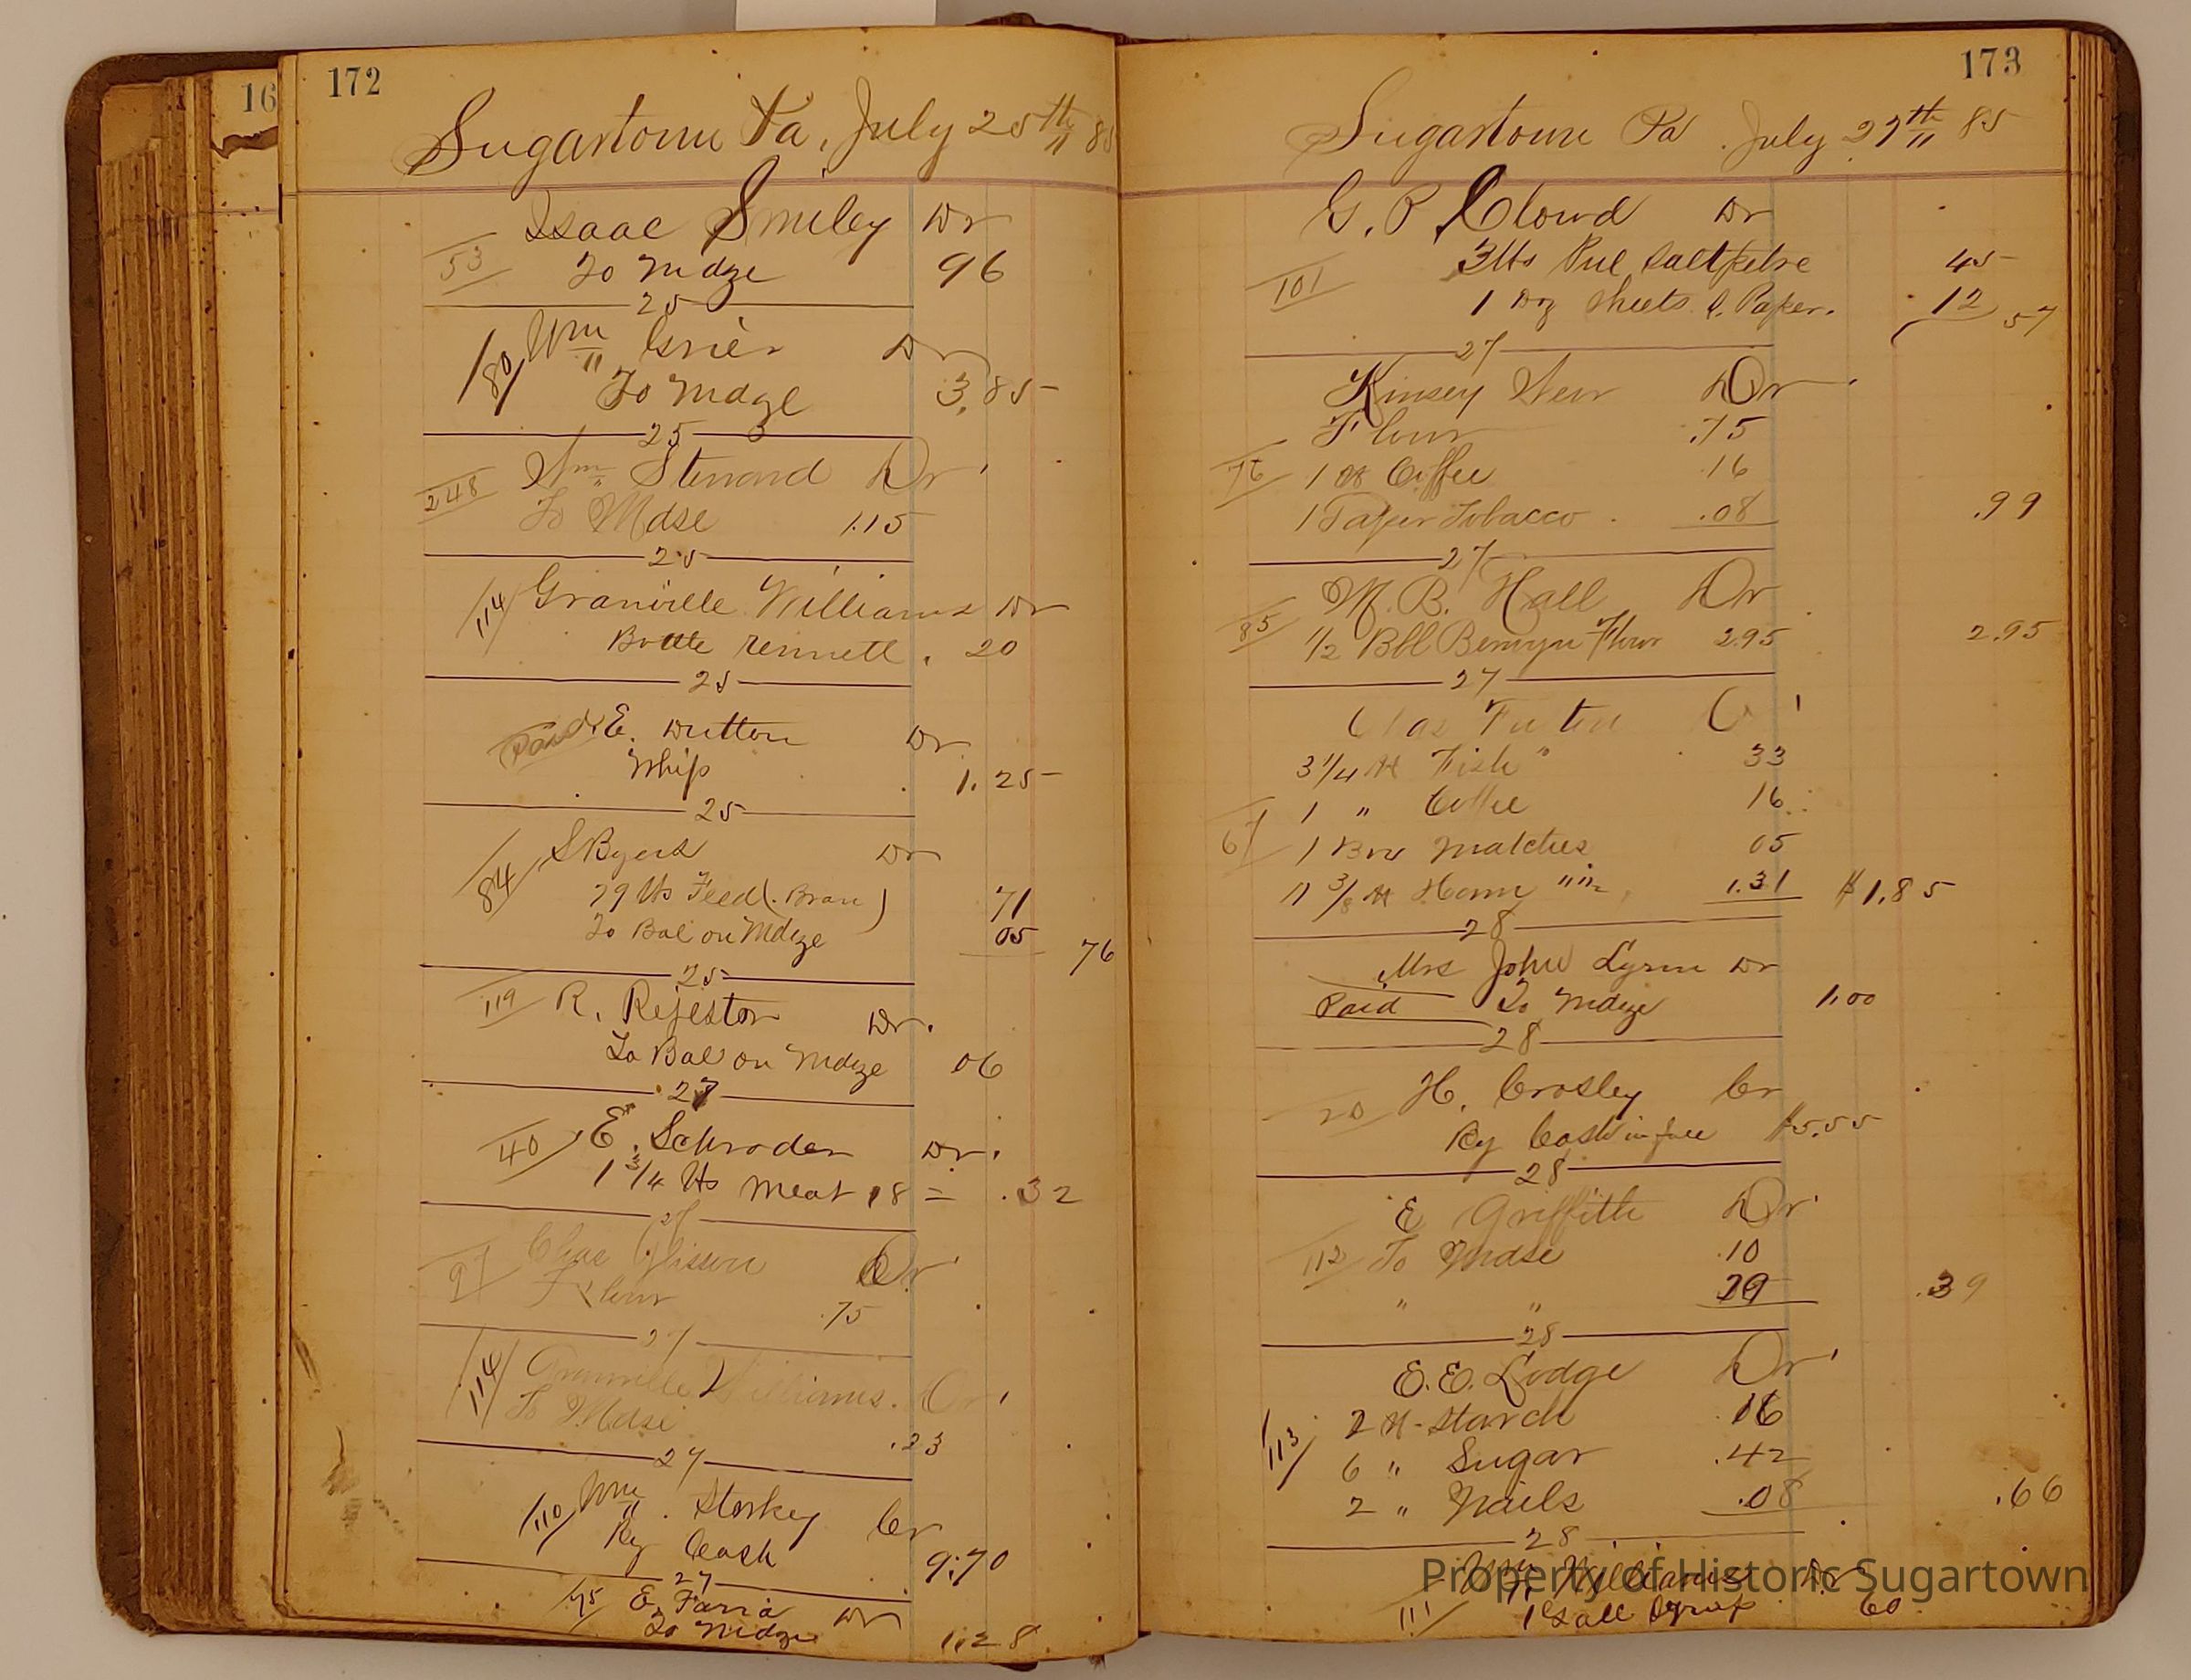 16
172
Sugartown Pa, July 25th 85
Isaac Smiley Dr
53 To Mdze 96
25
180 Wm Grier Dr
To Mdze 3,85
25
248 Wm Stenard Dr
To Mdse 1.15
25
114 Granville Williams Dr
Bottle rennett . 20
25
Paid E. Dutton Dr
Whip 1.25
25
84 S Byers Dr
79 lbs Feed (Bran) 71
To Bal on Mdze 05 76
25
119 R. Dr.
To Bal on Mdze 06
27
40 E. Schroder Dr.
1 3/4 lbs meat 18 = .32
27
97 Chas Dr
Flour .75
27
114 Granville Williams. Dr
To Mdse .23
27
110 Wm Storkey Cr
By Cash 9.70
27
75 E. Faria Dr
To Mdze 1.28
173
Sugartown Pa July 27th 85
G. P. Cloud Dr
101 3 lbs Pul Saltpetre 45
1 Doz Sheets S. Paper. 12 57
27
Kinsey Weir Dr
Flour .75
76 1 # Coffee 16
1 Paper Tobacco .08 .99
27
M. B. Hall Dr
85 1/2 Bbl Berwyn Flour 2.95 2.95
27
3 1/4 # Fish 33
67 1 " Coffee 16
1 Box Matches 05
3/8 # Ham 1.31 $1.85
28
Mrs John Lynn Dr
Paid To Mdze 1.00
28
20 H. Crosley Cr
By Cash in full $5.55
28
E Griffith Dr
112 To Mdse .10
" " 29 .39
28
E. E. Lodge Dr
113 2 #- Starch .16
6 " Sugar .42
2 " Nails .08 .66
28
Wm Williams Dr
111 1 Gall Syrup 60
Property of Historic Sugartown